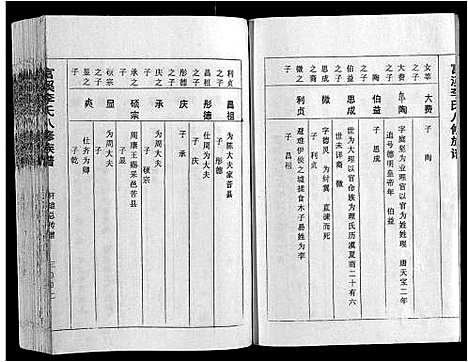 富溪李氏八修族谱
女莘之子
大费
子 陶
大费之子
陶
字庭坚为业理官以官为姓姓理 唐天宝二年
追号德明皇帝年 伯益
陶之子
伯益
子 恩成
伯益之子
恩成
世为大理以官命族为理氏历虞夏商二十有六
世未详裔 微
恩成之子
微
字德灵 为纣翼 直谏而死
子 利贞
微之子
利贞
避难伊侯之墟揉食木子易姓为李
子 昌祖
利贞之子
昌祖
为陈大夫家普县
子 彤德
昌祖之子
彤德
仕周为大夫
子 庆
彤德之子
庆
子 承
庆之子
承
为周大夫
子 硕宗
承之子
硕宗
周康王赐采邑苦县
子 显
硕宗之子
显
为周大夫
子 炎
显之子
炎
仕齐为卿
子 乾
富溪李氏八修族谱